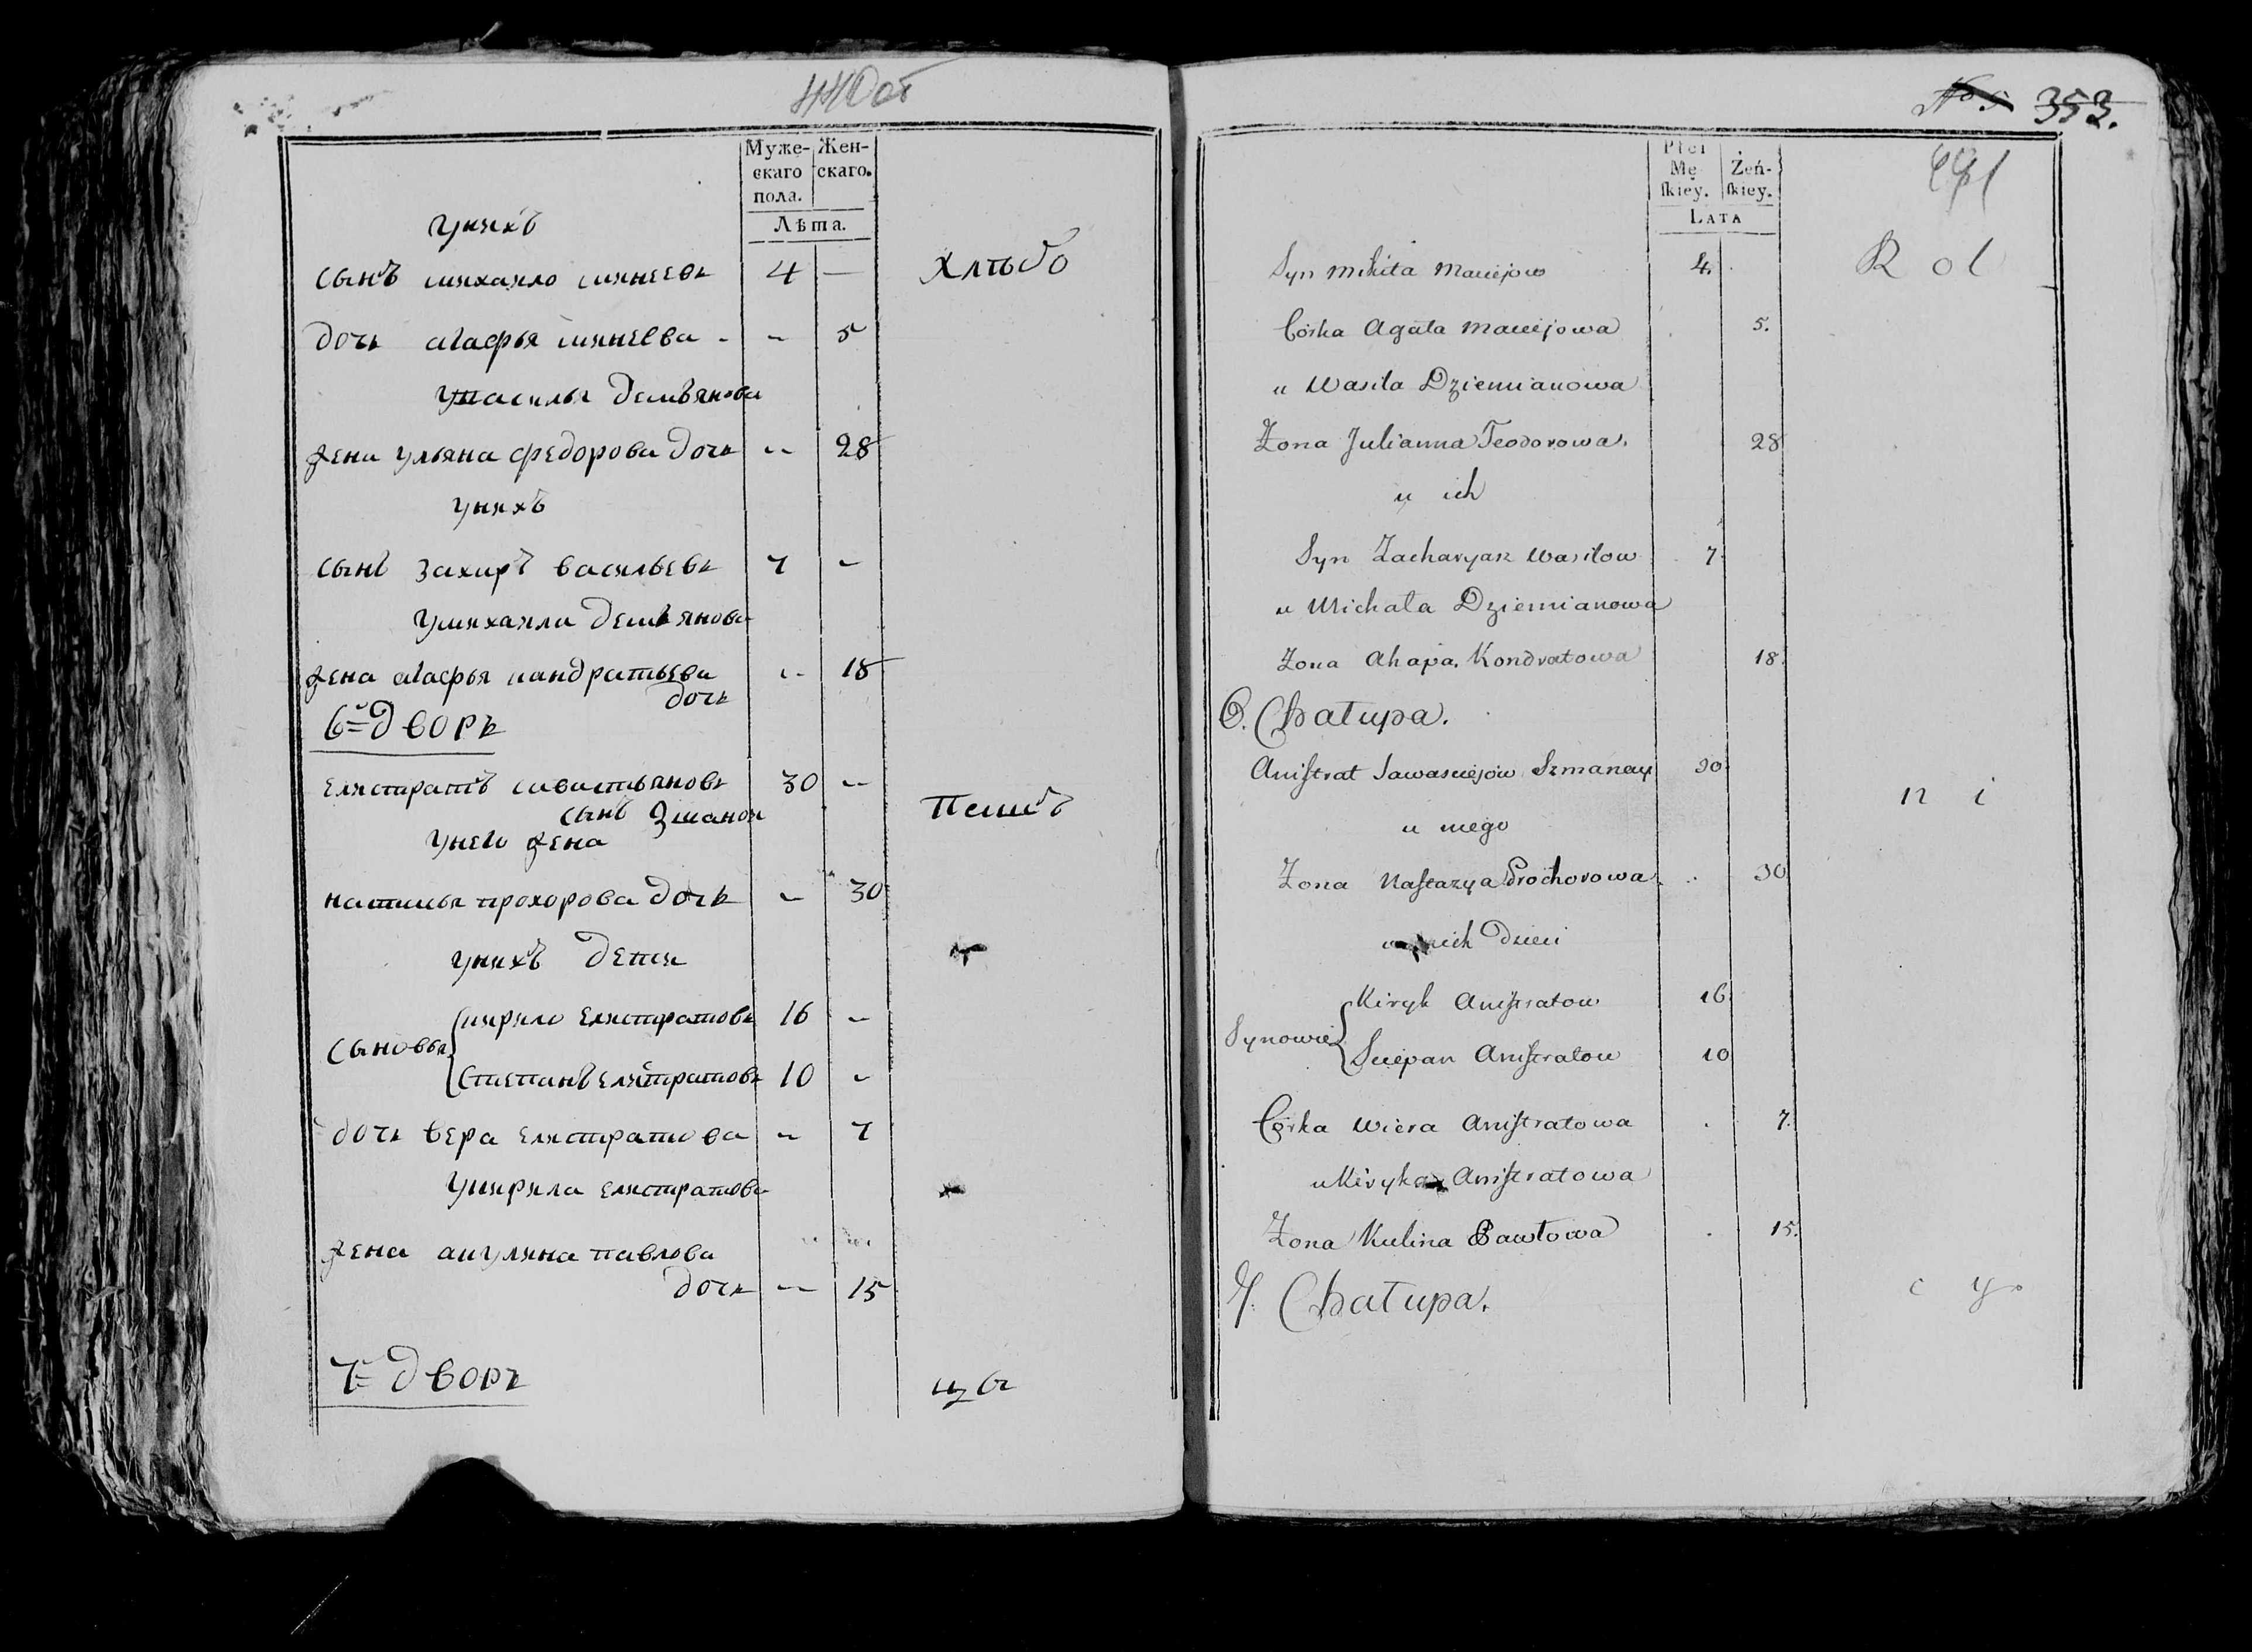 440об
Муже-
скаго
пола.
Жен-
скаго.
Лѣта.
унихъ
сынъ михайло минеевъ 4 —
Хлѣбо
дочь агафья минеева - - 5
Увасилья демьянова
жена ульяна федорова дочь - 28
унихъ
сынъ захаръ васильевъ 7 -
Умихайла демьянова
жена агафья кандратьева - 18
дочь
6й дворъ
елистратъ савастьяновъ 30 -
сынъ Зманои
Пашъ
Унего жена
настасья прохорова дочь - 30
унихъ дети
Сыновья
кирило елистратовъ 16 -
Степанъ елистратовъ 10 -
дочь вера елистратова - 7
Укирила елистратова
жена акулина павлова
дочь - 15
7й дворъ
цы
353.
441
Płci
Mę
ſkiey.
Żeń-
ſkiey.
LATA
Syn Mikita Maciejow 4.
R o l
Córka Agata Maciejowa 5.
u Wasila Dziemianowa
Żona Julianna Teodorowa. 28
u ich
Syn Zacharyasz Wasilow 7.
u Michala Dziemianowa
Żona Ahapa Kondratowa 18.
6. Chatupa.
Aniſtrat Sawasciejow Szmanay 30
n i
u niego
Żona Naſtazya Prochorowa. 30
u nich Dzieci
Synowie
Kiryk Aniſtratow 16
Sciepan Aniſtratow 10
Córka Wiera Aniſtratowa 7.
u Kiryka Aniſtratowa
Żona Kulina Pawłowa 15.
7. Chatupa.
c y.